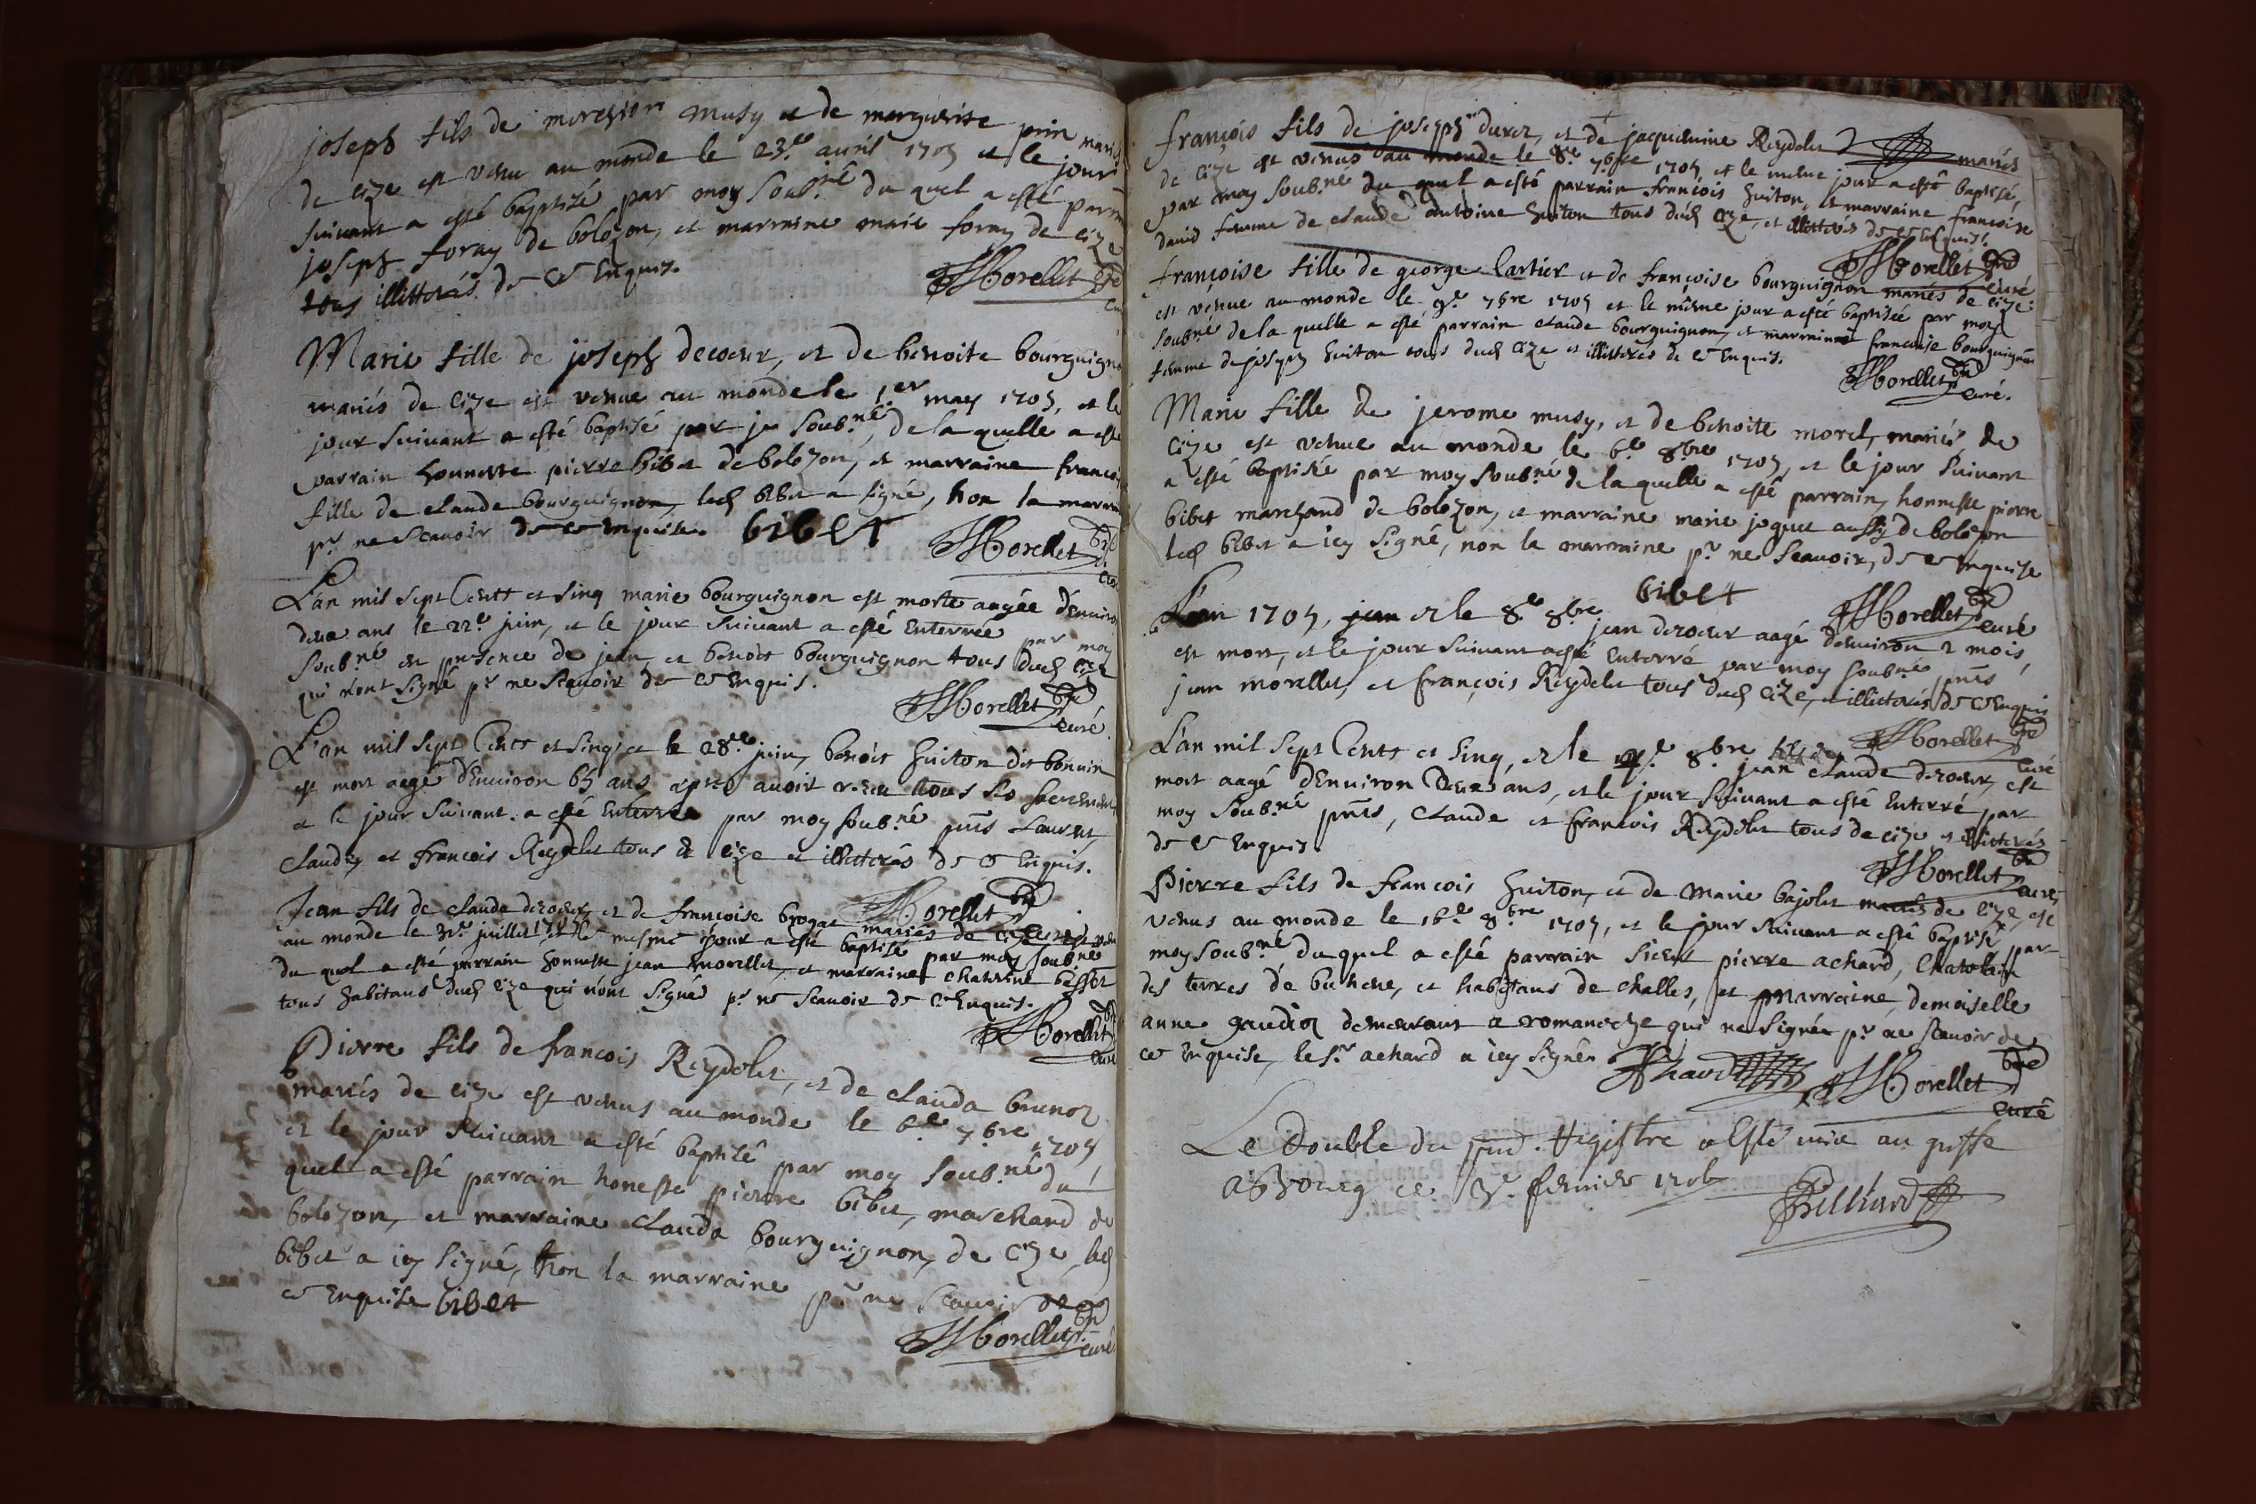 joseph fils de musy et de marguerite mariés
de cize est venu au monde le 23.e auril 1705 et le jour
suiuant a esté baptizé par moy soub.né du quel a esté parrain
joseph foray de bolozon, et marraine marie foray de cize
tous illitterés de ce enquis.
Morellet bre
curé
Marie fille de joseph decoeur, et de benoite bourguignon
mariés de cize est venue au monde le 1.er may 1705, et le
jour suiuant a esté baptisé par je soub.né, de la quelle a esté
parrain honneste pierre bibet de bolozon, et marraine francoise
fille de claude bourguignon, led bibet a signé, non la marraine
p.r ne scauoir de ce enquise. bibet
Morellet bre
curé
L'an mil sept Cents et sinq marie bourguignon est morte aagée d'enuiron
deux ans le 22.e juin, et le jour suiuant a esté Enterrée par moy
soub.né en presence de jean, et benoit bourguignon tous dud cize
qui n'ont signé p.r ne scauoir de ce enquis.
Morellet bre
curé
L'an mil sept Cents et sinq et le 28.e juin, benoit huiton dit bonuin
est mort aagé d'Enuiron 65 ans, apres auoir receu tous les sacremens
et le jour suiuant a esté Enterré par moy soub.né pñts Laurent,
Claude, et francois Reydelet tous de cize et illitterés de ce Enquis.
Morellet bre
Jean fils de claude decoeur, et de francoise brogat mariés de cize est venu
au monde le 31.e juillet 1705 et le mesme jour a esté baptisé par moy soub.né
du quel a esté parrain honneste jean morellet, et marraine Chaterine besson
tous habitans dud cize qui n'ont signé p.r ne scauoir de ce Enquis.
Morellet bre
curé
Pierre fils de francois Reydelet, et de clauda brunot
mariés de cize est venus au monde le 6.e 7bre 1705,
et le jour suiuant a esté baptisé par moy soub.né du
quel a esté parrain honeste pierre bibet, marchand de
bolozon, et marraine Clauda bourguignon, de Cize, led
bibet a icy signé, non la marraine p.r ne scauoir de
ce enquise bibet
Morellet bre
curé
françois fils de joseph duret, et de jaquemine Reydelet mariés
de cize est venus au monde le 8.e 7bre 1705, et le mesme jour a esté baptisé,
par moy soub.né du quel a esté parrain francois huiton, et marraine francoise
dauid femme de claude antoine huiton tous dud cize, et illitterés de ce Enquis.
Morellet bre
curé
françoise fille de george Cartier et de françoise bourguignon mariés de cize
est venue au monde le 9.e 7bre 1705 et le même jour a esté baptisée par moy
soub.né de la quelle a esté parrain claude bourguignon, et marraine francoise bourguignon
femme de joseph huiton tous dud cize et illitterés de ce enquis.
Morellet bre
curé.
Marie fille de jerome musy, et de benoite morel, mariés de
cize est venue au monde le 6.e 8bre 1705, et le jour suiuant
a esté baptisée par moy soub.né de la quelle a esté parrain, honneste pierre
bibet marchand de bolozon, et marraine marie joguet aussy de bolozon
led bibet a icy signé, non la marraine p.r ne scauoir, de ce enquise
bibet
Morellet bre
curé
L'an 1705, et le 8.e 8bre jean decoeur aagé d'enuiron 2 mois
est mort, et le jour suiuant a esté Enterré par moy soub.né pñts
jean morellet, et françois Reydelet tous dud cize, et illitterés de ce enquis
Morellet bre
curé
L'an mil sept Cents et sinq, et le 8bre jean claude decoeur, est
mort aagé d'Enuiron Deux ans, et le jour suiuant a esté Enterré par
moy soub.né pñts, claude et francois Reydelet tous de cize et illitterés
de ce enquis
Morellet bre
curé
Pierre fils de francois huiton, et de marie bajolet mariés de cize, est
venus au monde le 16.e 8bre 1705, et le jour suiuant a esté baptisé par
moy soub.né, du quel a esté parrain sieur pierre achard, Chatelain
des terres de buhene, et habitans de challes, et marraine, demoiselle
anne gaudiot demeurant a romaneche qui ne signée p.r ne scauoir de
ce enquise, le s.r achard a icy signé
Achard
Morellet bre
curé
Le Double du pnt. Registre a esté mis au greffe
a Bourg ce 3.e feurier 1706
Billiard